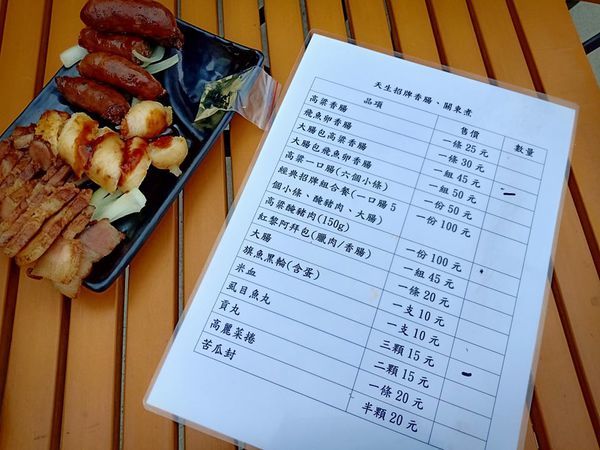 天生招牌香腸、關東煮
品項 售價 數量
高粱香腸 一條 25 元
飛魚卵香腸 一條 30 元
大腸包高粱香腸 一組 45 元
大腸包飛魚卵香腸 一組 50 元
高粱一口腸(六個小條) 一份 50 元
經典招牌組合餐(一口腸 5 一份 100 元
個小條、醃豬肉、大腸)
高粱醃豬肉(150g) 一份 100 元
紅藜阿拜包(臘肉/香腸) 一組 45 元
大腸 一條 20 元
旗魚黑輪(含蛋) 一支 10 元
米血 一支 10 元
虱目魚丸 三顆 15 元
貢丸 二顆 15 元
高麗菜捲 一條 20 元
苦瓜封 半顆 20 元